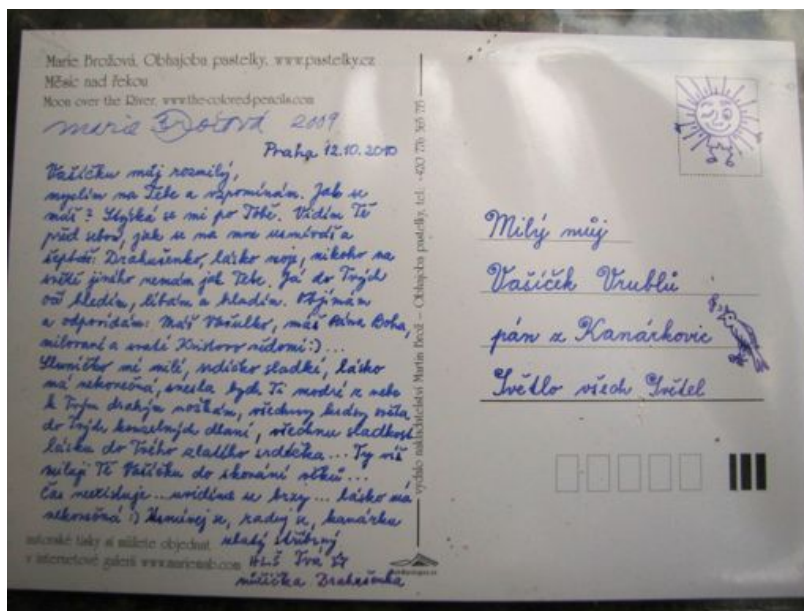 Marie Brožová, Obhajoba pastelky, www.pastelky.cz
Měsíc nad řekou
Moon over the River, www.the-colored-pencils.com
Marie Brožová 2009
Praha 12.10.2010
Vašíčku můj rozmilý,
myslím na Tebe a vzpomínám. Jak se
máš? Stýská se mi po Tobě. Vidím Tě
před sebou, jak se na mne usmíváš a
šeptáš: Drahušenko, lásko moje, nikoho na
světě jiného nemám jak Tebe. Já do Tvých
očí hledím, líbám a hladím. Objímám
a odpovídám: Máš Vašulko, máš Pána Boha,
milování a svatí Kristovy vědomí :)...
Sluníčko mé milé, srdíčko sladké, lásko
má nekonečná, snesla bych Ti modré z nebe
k Tvým drahým nožkám, všechny krásy světa
do Tvých kouzelných dlaní, všechnu sladkost
lásku do Tvého zlatého srdéčka... Ty víš
miluji Tě Vašíčku do skonání věků...
Čas neexistuje... uvidíme se brzy... lásko má
nekonečná :) Usmívej se, raduj se, kanárku
zlatý stříbrný
autorské tisky si můžete objednat
v internetové galerii www.marieab.com
HLŠ Tvá
Drahušenka
vydalo nakladatelství Martin Brož – Obhajoba pastelky, tel.: +420 776 565 715
Milý můj
Vašíček Vrublů
pán z Kanárkovic
Světlo všech Světel